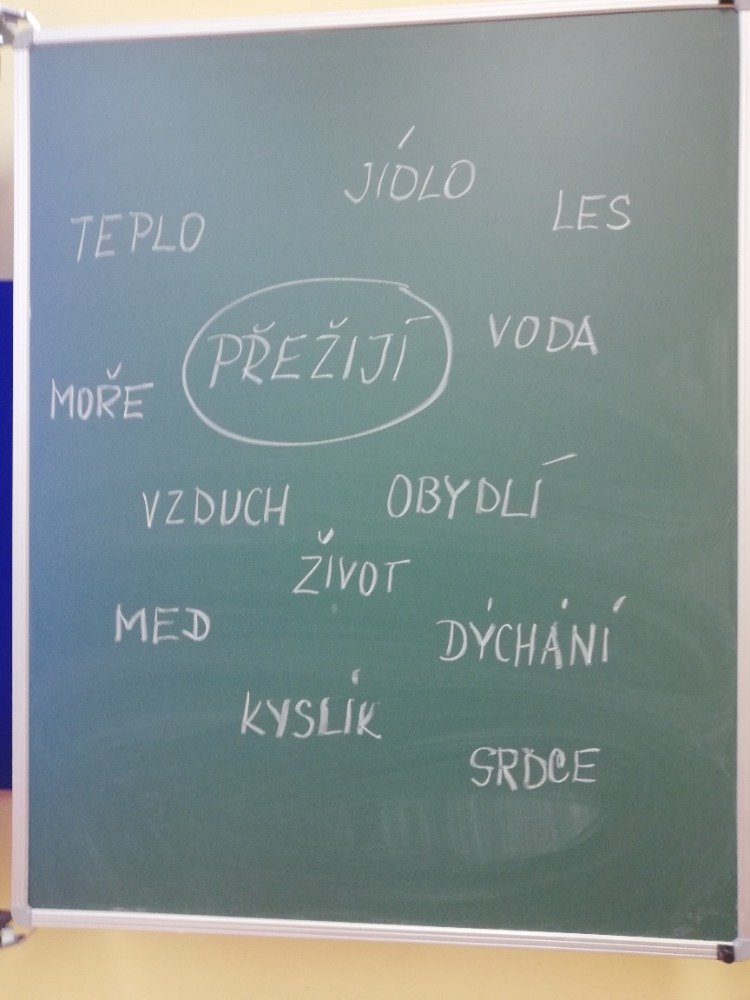 JÍDLO
LES
TEPLO
VODA
PŘEŽIJÍ
MOŘE
VZDUCH
OBYDLÍ
ŽIVOT
MED
DÝCHÁNÍ
KYSLÍK
SRDCE